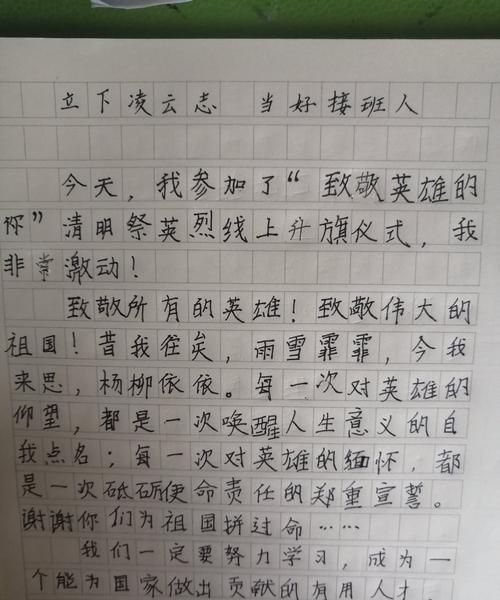 立下凌云志 当好接班人
今天，我参加了“致敬英雄的
你”清明祭英烈线上升旗仪式，我
非常激动！
致敬所有的英雄！致敬伟大的
祖国！昔我住矣，雨雪霏霏，今我
来思，杨柳依依。每一次对英雄的
仰望，都是一次唤醒人生意义的自
我点名；每一次对英雄的缅怀，都
是一次砥砺使命责任的郑重宣誓。
谢谢你们为祖国拼过命……
我们一定要努力学习，成为一
个能为国家做出贡献的有用人才。